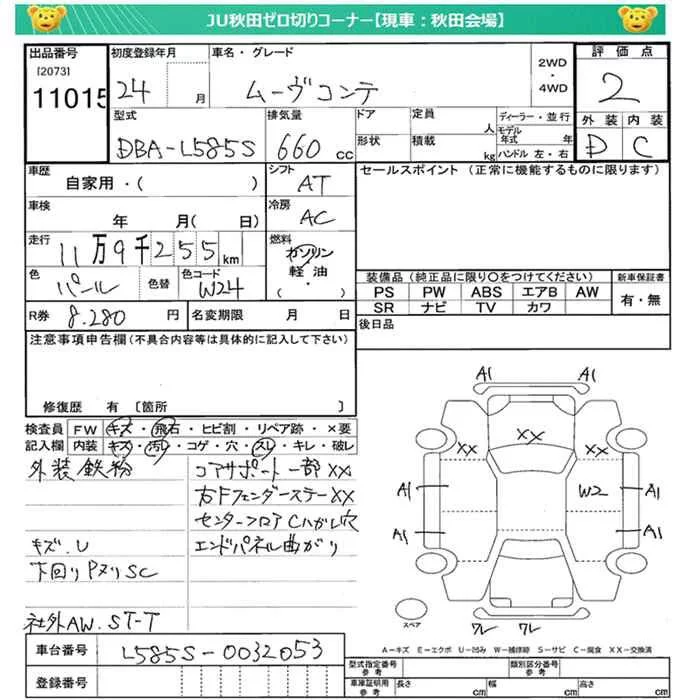 JU秋田ゼロ切りコーナー【現車：秋田会場】
出品番号 初度登録年月 車名・グレード 2WD・4WD 評価点
[2073]
11015 24 月 ムーヴコンテ 2
型式 排気量 ドア 定員 人 ディーラー・並行 外装 内装
DBA-L585S 660 cc 形状 積載 kg モデル年式 年 ハンドル 左・右 D C
車歴 シフト セールスポイント（正常に機能するものに限ります）
自家用・( ) AT
車検 年 月( 日) 冷房 AC
走行 11万9千255km 燃料 ガソリン・軽油・( )
色 パール 色替 色コード W24
装備品（純正品に限り〇をつけてください） 新車保証書
PS PW ABS エアB AW 有・無
SR ナビ TV カワ
R券 8.280 円 名変期限 月 日 後日品
注意事項申告欄（不具合内容等は具体的に記入して下さい）
修復歴 有 〔箇所 〕
検査員記入欄 FW キズ・飛石・ヒビ割・リペア跡・×要
内装 キズ・汚れ・コゲ・穴・スレ・キレ・破レ
外装鉄粉 コアサポート一部XX
右Fフェンダーステー XX
センターフロアCハガレ穴
キズ.U エンドパネル曲がり
下回りPヌリSC
社外AW. ST-T
A1 A1
XX XX XX
A1 W2 A1
A1 A1
ワレ ワレ
スペア
A－キズ E－エクボ U－凹み W－補修跡 S－サビ C－腐食 XX－交換済
車台番号 L585S-0032053
登録番号
型式指定番号 参考 類別区分番号 参考
車庫証明用 参考 長さ cm 幅 cm 高さ cm